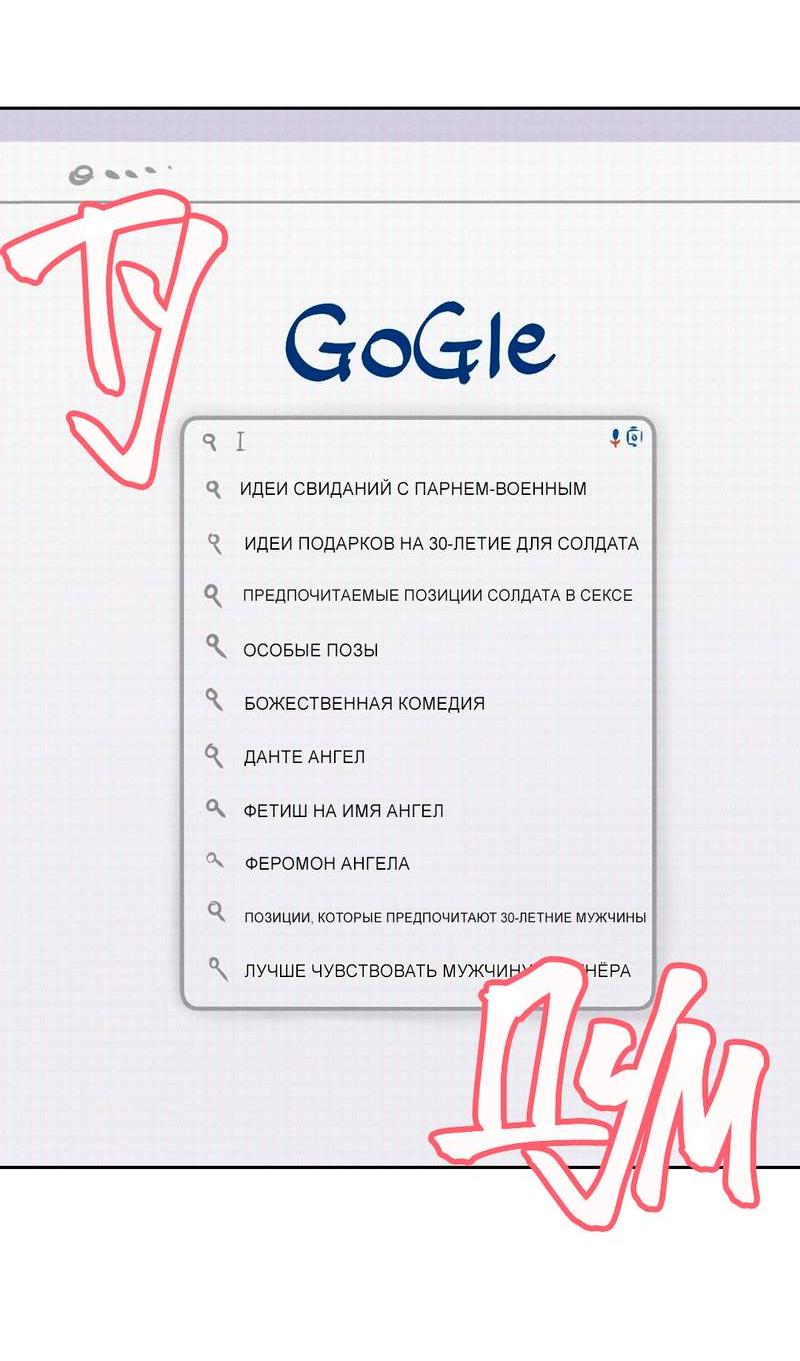 ТУ
GoGle
ИДЕИ СВИДАНИЙ С ПАРНЕМ-ВОЕННЫМ
ИДЕИ ПОДАРКОВ НА 30-ЛЕТИЕ ДЛЯ СОЛДАТА
ПРЕДПОЧИТАЕМЫЕ ПОЗИЦИИ СОЛДАТА В СЕКСЕ
ОСОБЫЕ ПОЗЫ
БОЖЕСТВЕННАЯ КОМЕДИЯ
ДАНТЕ АНГЕЛ
ФЕТИШ НА ИМЯ АНГЕЛ
ФЕРОМОН АНГЕЛА
ПОЗИЦИИ, КОТОРЫЕ ПРЕДПОЧИТАЮТ 30-ЛЕТНИЕ МУЖЧИНЫ
ЛУЧШЕ ЧУВСТВОВАТЬ
ДУМ